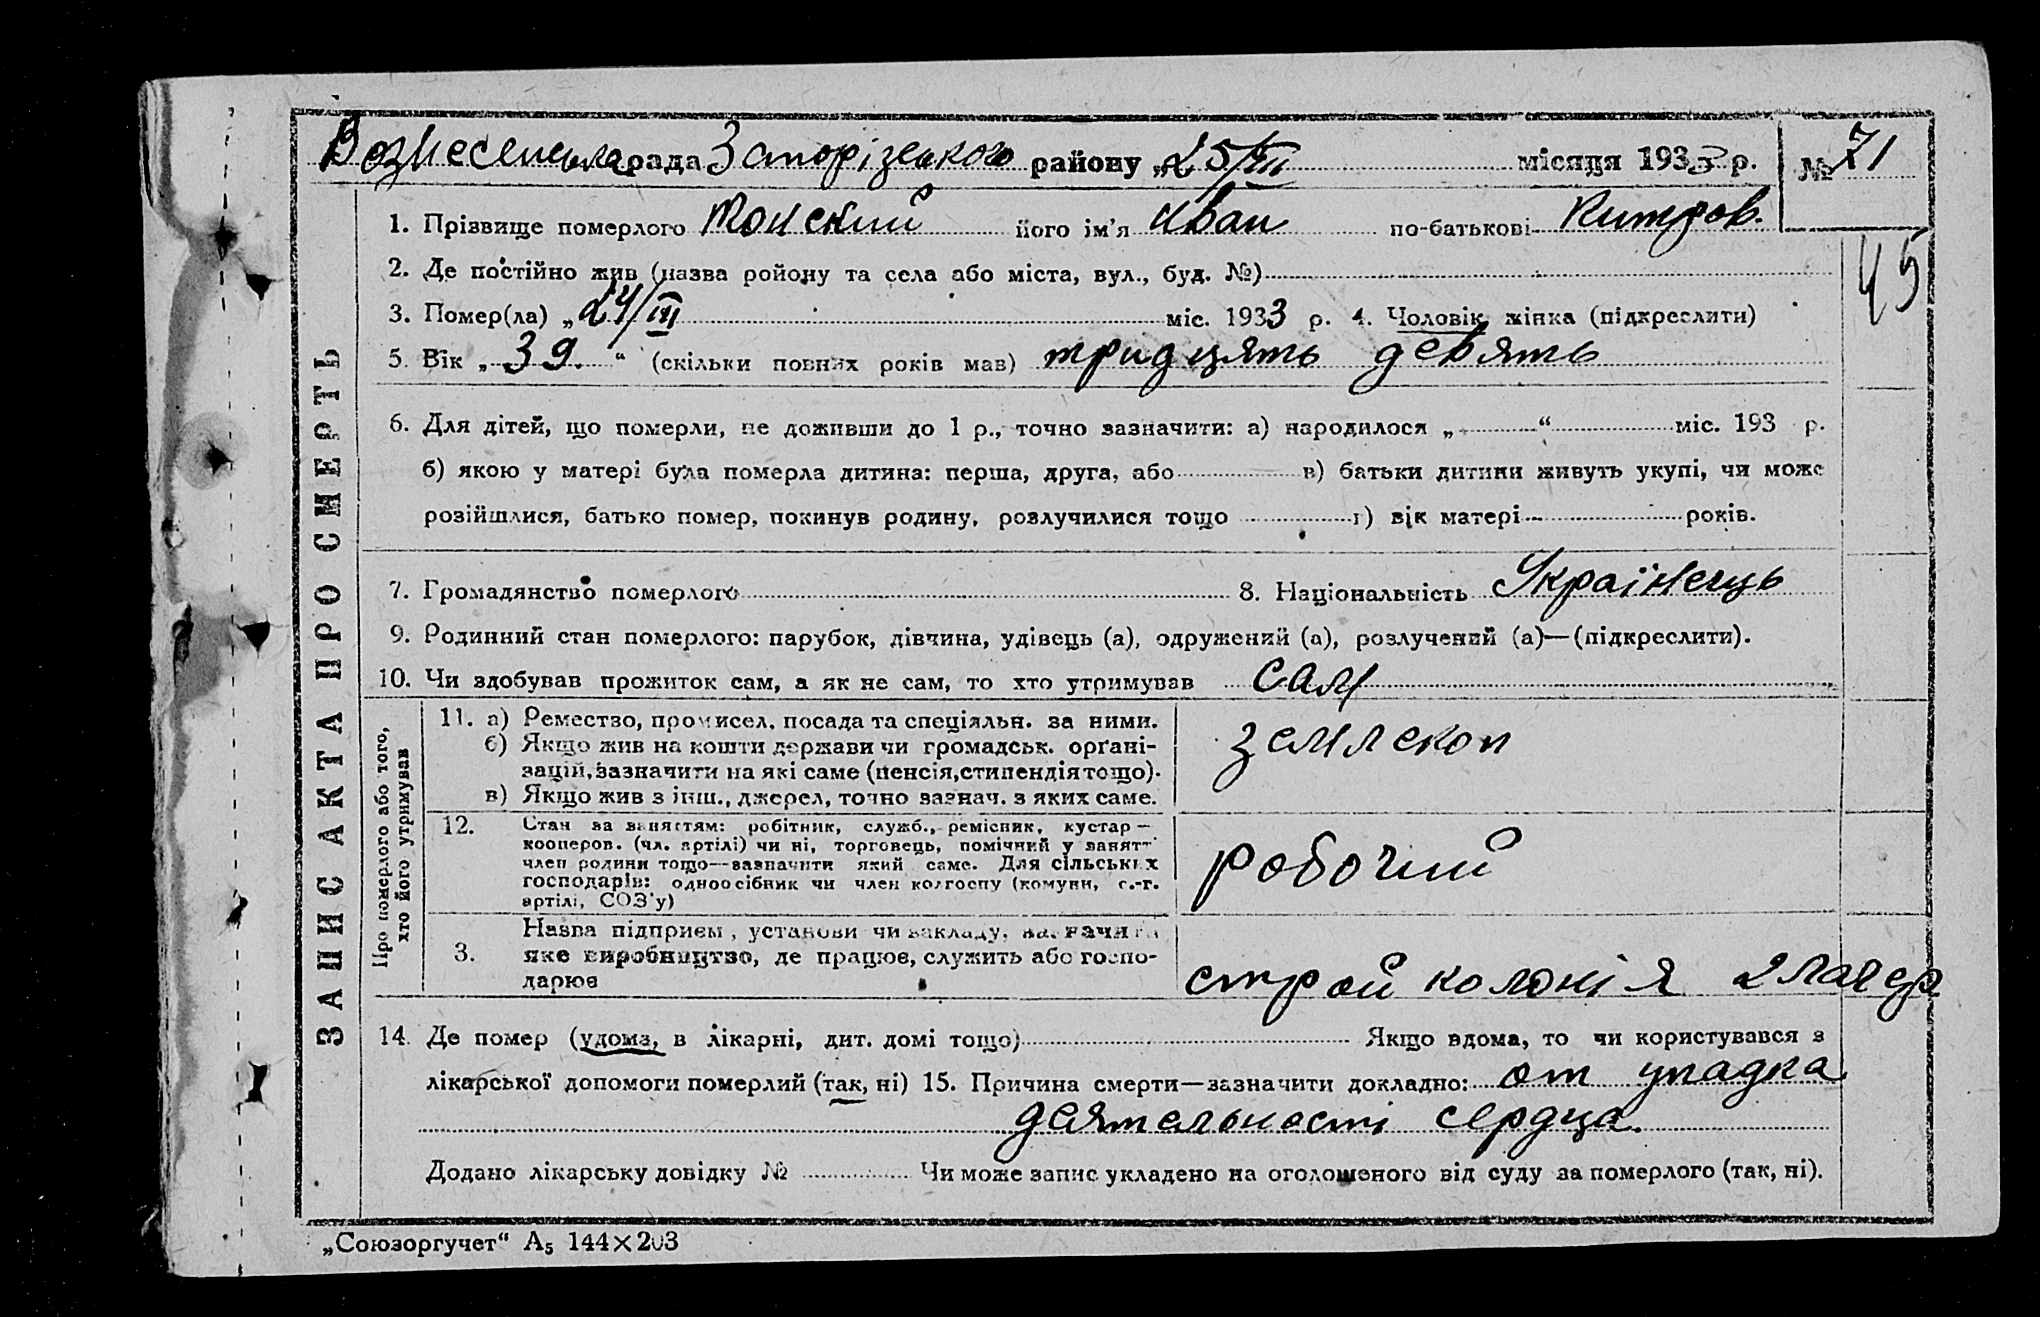 Вознесенська рада Запорізького району „25/III місяця 1933 р. № 71
1. Прізвище померлого Тонский його ім'я Иван по-батькові
45
2. Де постійно жив (назва ройону та села або міста, вул., буд. №)
3. Помер(ла) „24/III міс. 1933 р. 4. Чоловік, жінка (підкреслити)
5. Вік „39." (скільки повних років мав) тридцять девять
6. Для дітей, що померли, не доживши до 1 р., точно зазначити: а) народилося „ " міс. 193 р.
б) якою у матері була померла дитина: перша, друга, або в) батьки дитини живуть укупі, чи може
розійшлися, батько помер, покинув родину, розлучилися тощо г) вік матері років.
7. Громадянство померлого 8. Національність Українець
9. Родинний стан померлого: парубок, дівчина, удівець (а), одружений (а), розлучений (а)—(підкреслити).
10. Чи здобував прожиток сам, а як не сам, то хто утримував сам
ЗАПИС АКТА ПРО СМЕРТЬ
Про померлого або того, хто його утримував
11. а) Ремество, промисел, посада та спеціяльн. за ними.
б) Якщо жив на кошти держави чи громадськ. органі-
зацій, зазначити на які саме (пенсія, стипендія тощо).
в) Якщо жив з інш., джерел, точно зазнач. з яких саме.
землекоп
12. Стан за заняттям: робітник, служб., ремісник, кустар—
кооперов. (чл. артілі) чи ні, торговець, помічний у занятт
член родини тощо—зазначити який саме. Для сільських
господарів: одноосібник чи член колгоспу (комуни, с.-г.
артілі, СОЗ'у)
робочий
3. Назва підприєм, установи чи закладу, назначити
яке виробництво, де працює, служить або госпо-
дарює
строй колонія 2 лагер
14. Де помер (удома, в лікарні, дит. домі тощо) Якщо вдома, то чи користувався з
лікарської допомоги померлий (так, ні) 15. Причина смерти—зазначити докладно: от упадка
деятельності сердца.
Додано лікарську довідку № Чи може запис укладено на оголошеного від суду за померлого (так, ні).
„Союзоргучет" А₅ 144×203